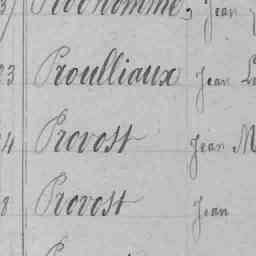 Prud'homme, Jean
23 Proulliaux Jean L
4 Provost Jean M
8 Provost Jean